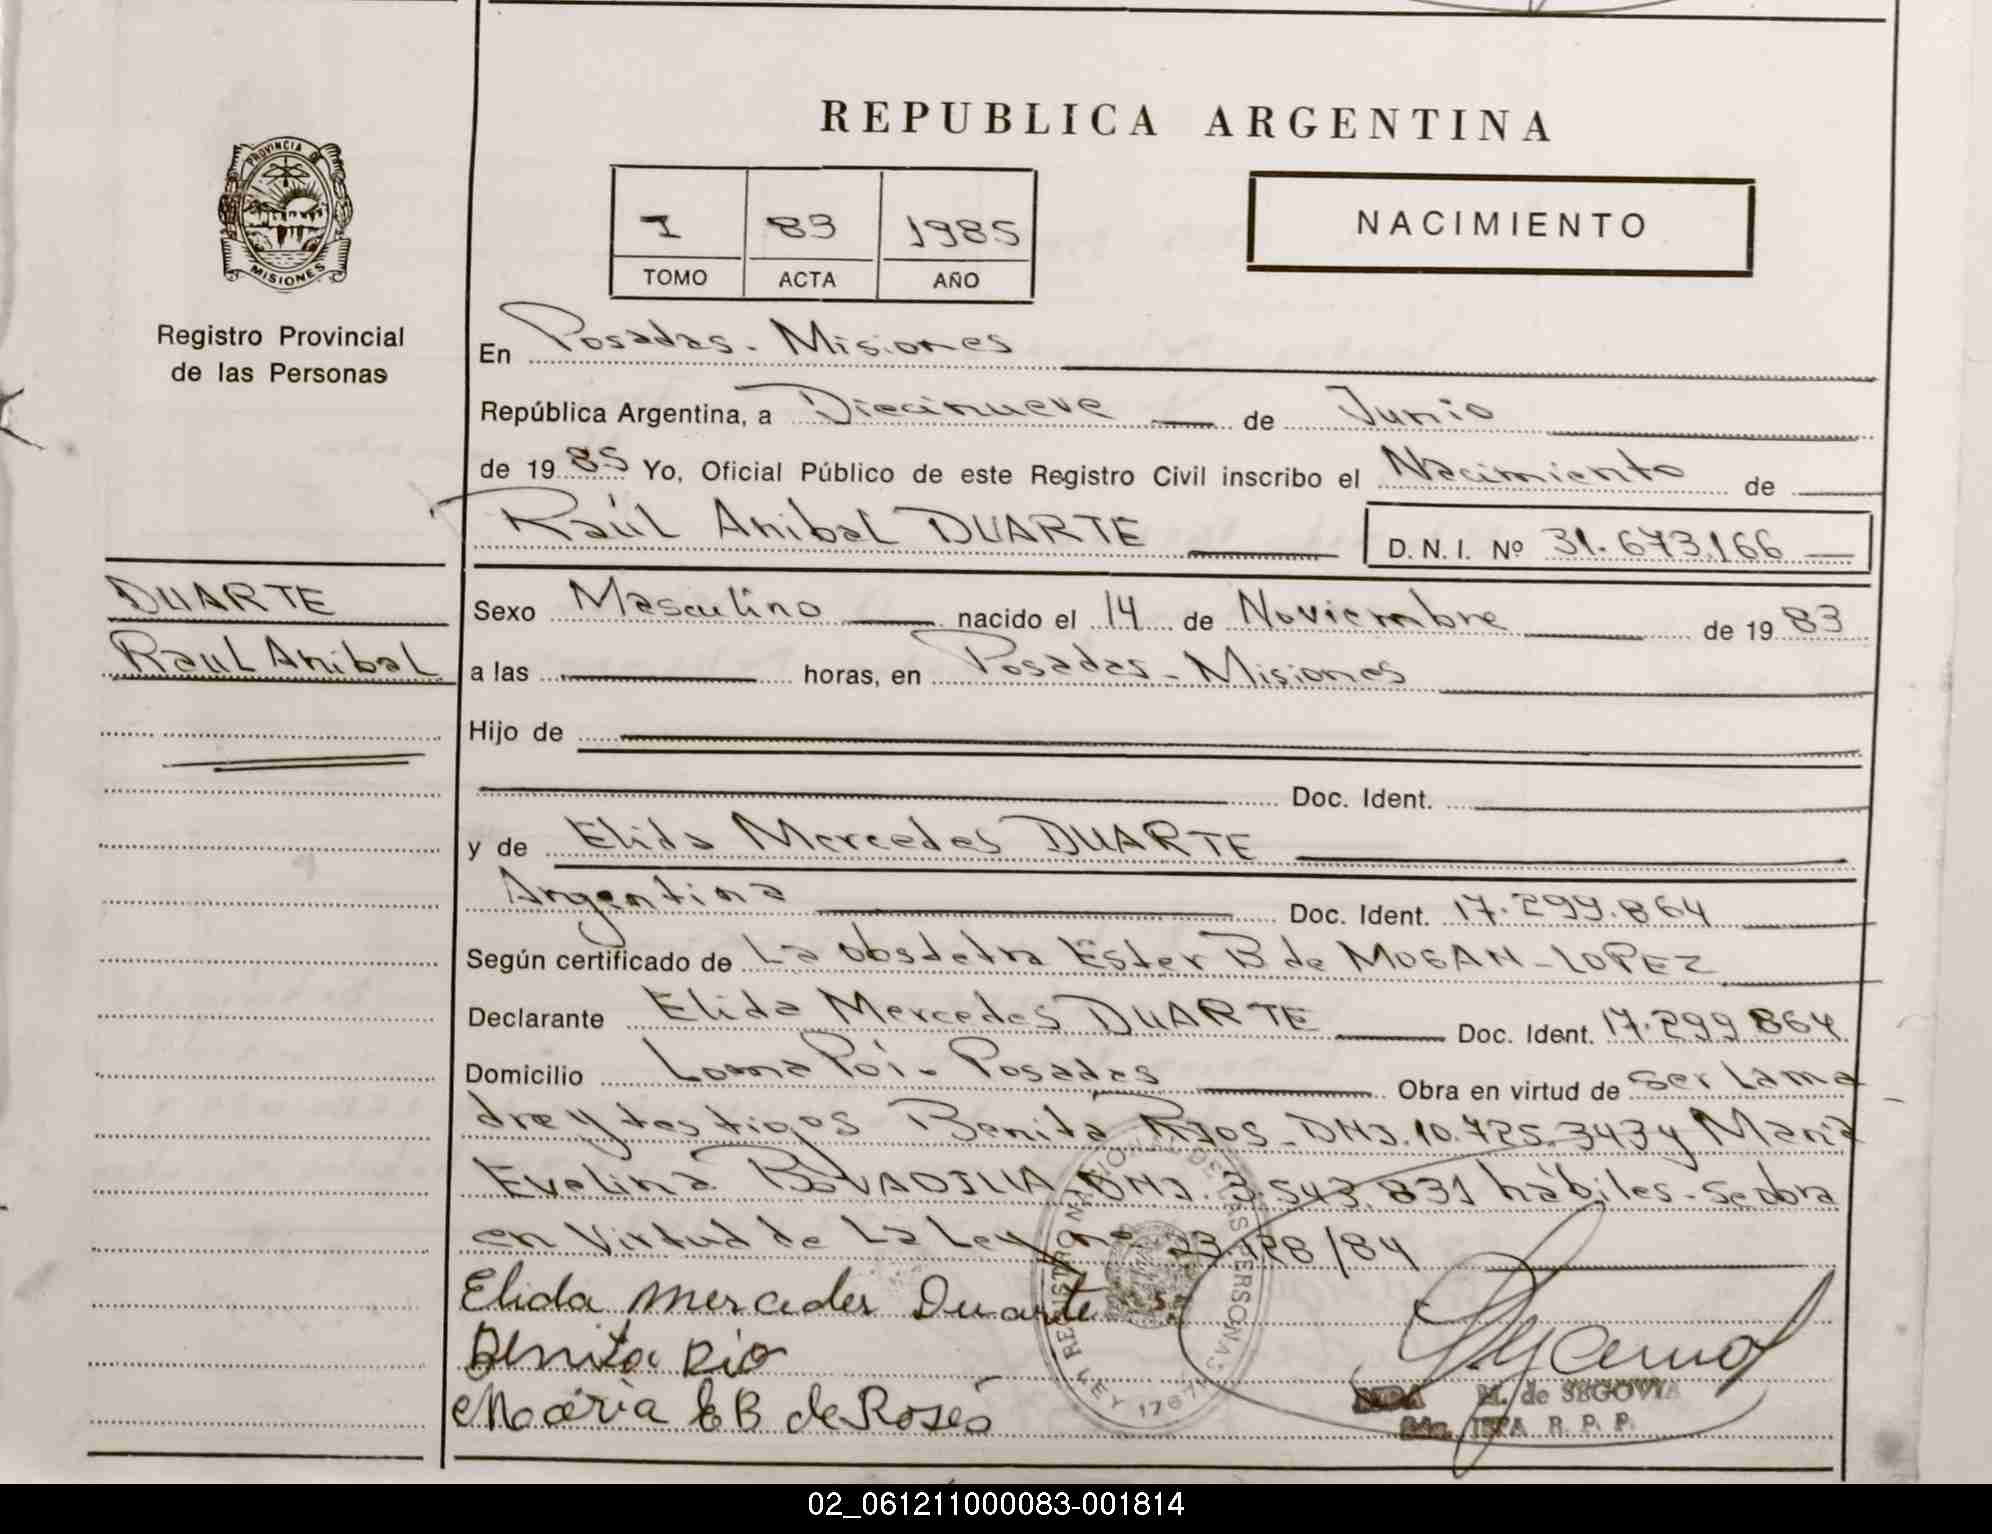 REPUBLICA ARGENTINA
PROVINCIA DE
MISIONES
Registro Provincial
de las Personas
I 83 1985
TOMO ACTA AÑO
NACIMIENTO
En Posadas - Misiones
República Argentina, a Diecinueve de Junio
de 1985 Yo, Oficial Público de este Registro Civil inscribo el Nacimiento de
Raúl Anibal DUARTE D.N.I. Nº 31.673.166
DUARTE
Raul Anibal
Sexo Masculino nacido el 14 de Noviembre de 1983
a las horas, en Posadas - Misiones
Hijo de
Doc. Ident.
y de Elida Mercedes DUARTE
Argentina Doc. Ident. 17.299.864
Según certificado de La obsdetra Ester B de MOGAN - LOPEZ
Declarante Elida Mercedes DUARTE Doc. Ident. 17.299.864
Domicilio Loma Poi - Posadas Obra en virtud de ser La ma
dre y testigos Benita Rios - DNI. 10.725.343 y Maria
Evelina BOVADILLA DNI. 3.543.831 hábiles - Se obra
en Virtud de La Ley nº 23.128/84
Elida Mercedes Duarte
Benita Rio
Maria E B de Roses
REGISTRO NACIONAL DE LAS PERSONAS
LEY 1767
M. de SEGOVIA
R. P. P.
02_061211000083-001814